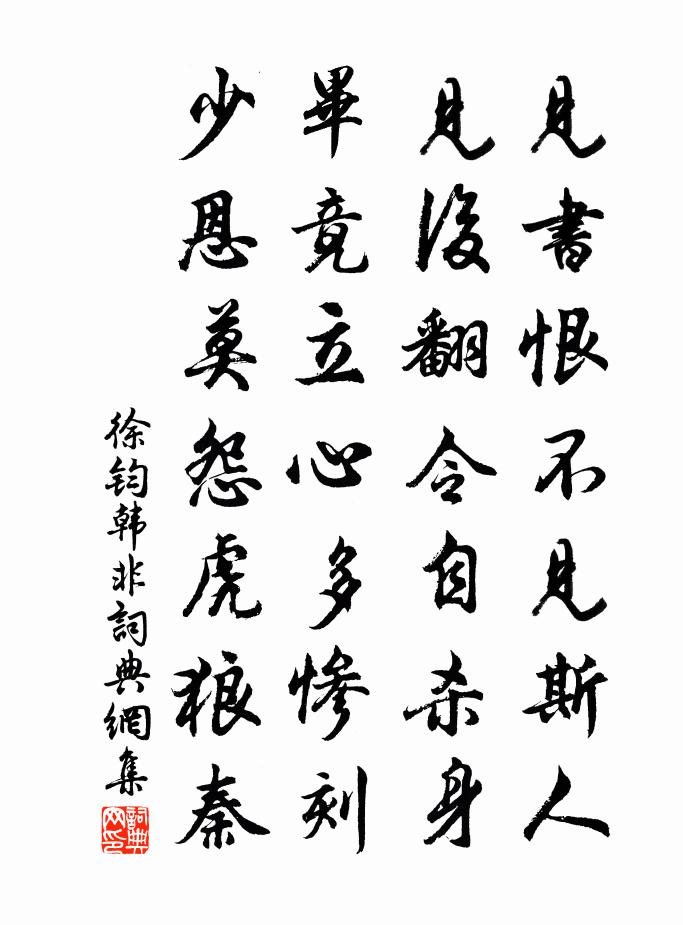 見書恨不見斯人
見後翻令自杀身
畢竟立心多慘刻
少恩莫怨虎狼秦
徐鈞韩非詞典網集
詞典网印